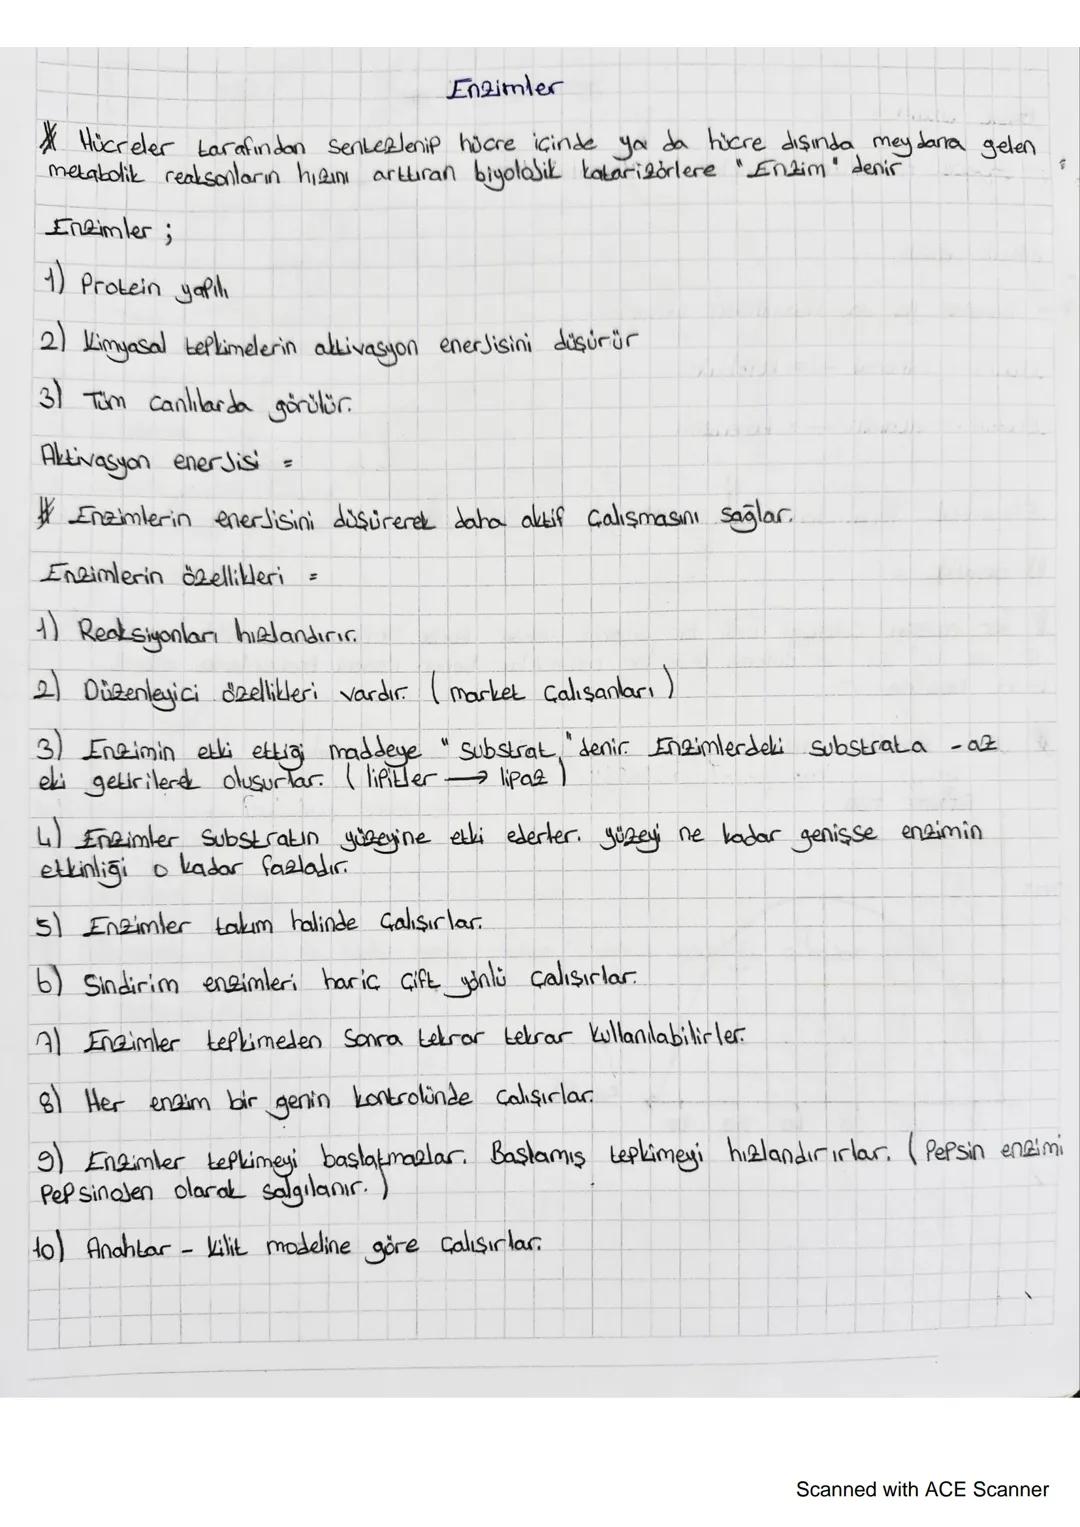 Enzimler
* Hücreler tarafından sentezlenip hücre içinde ya da hücre dışında meydana gelen
metabolik reaksonların hızını arttıran biyolojik katarizörlere "Enzim" denir
Enzimler ;
1) Protein yapılı
2) Kimyasal tepkimelerin aktivasyon enerjisini düşürür
3) Tüm canlılarda görülür.
Aktivasyon enerjisi =
* Enzimlerin enerjisini düşürerek daha aktif çalışmasını sağlar.
Enzimlerin özellikleri =
1) Reaksiyonları hızlandırır.
2) Düzenleyici özellikleri vardır. ( market çalışanları )
3) Enzimin etki ettiği maddeye "substrat" denir. Enzimlerdeki substrata -az
eki getirilerek oluşurlar. ( lipitler → lipaz )
4) Enzimler substratın yüzeyine etki ederler. yüzeyi ne kadar genişse enzimin
etkinliği o kadar fazladır.
5) Enzimler takım halinde çalışırlar.
6) Sindirim enzimleri hariç çift yönlü çalışırlar.
7) Enzimler tepkimeden sonra tekrar tekrar kullanılabilirler.
8) Her enzim bir genin kontrolünde çalışırlar.
9) Enzimler tepkimeyi başlatmazlar. Başlamış tepkimeyi hızlandırırlar. ( Pepsin enzimi
Pepsinojen olarak salgılanır. )
10) Anahtar - kilit modeline göre çalışırlar.
Scanned with ACE Scanner